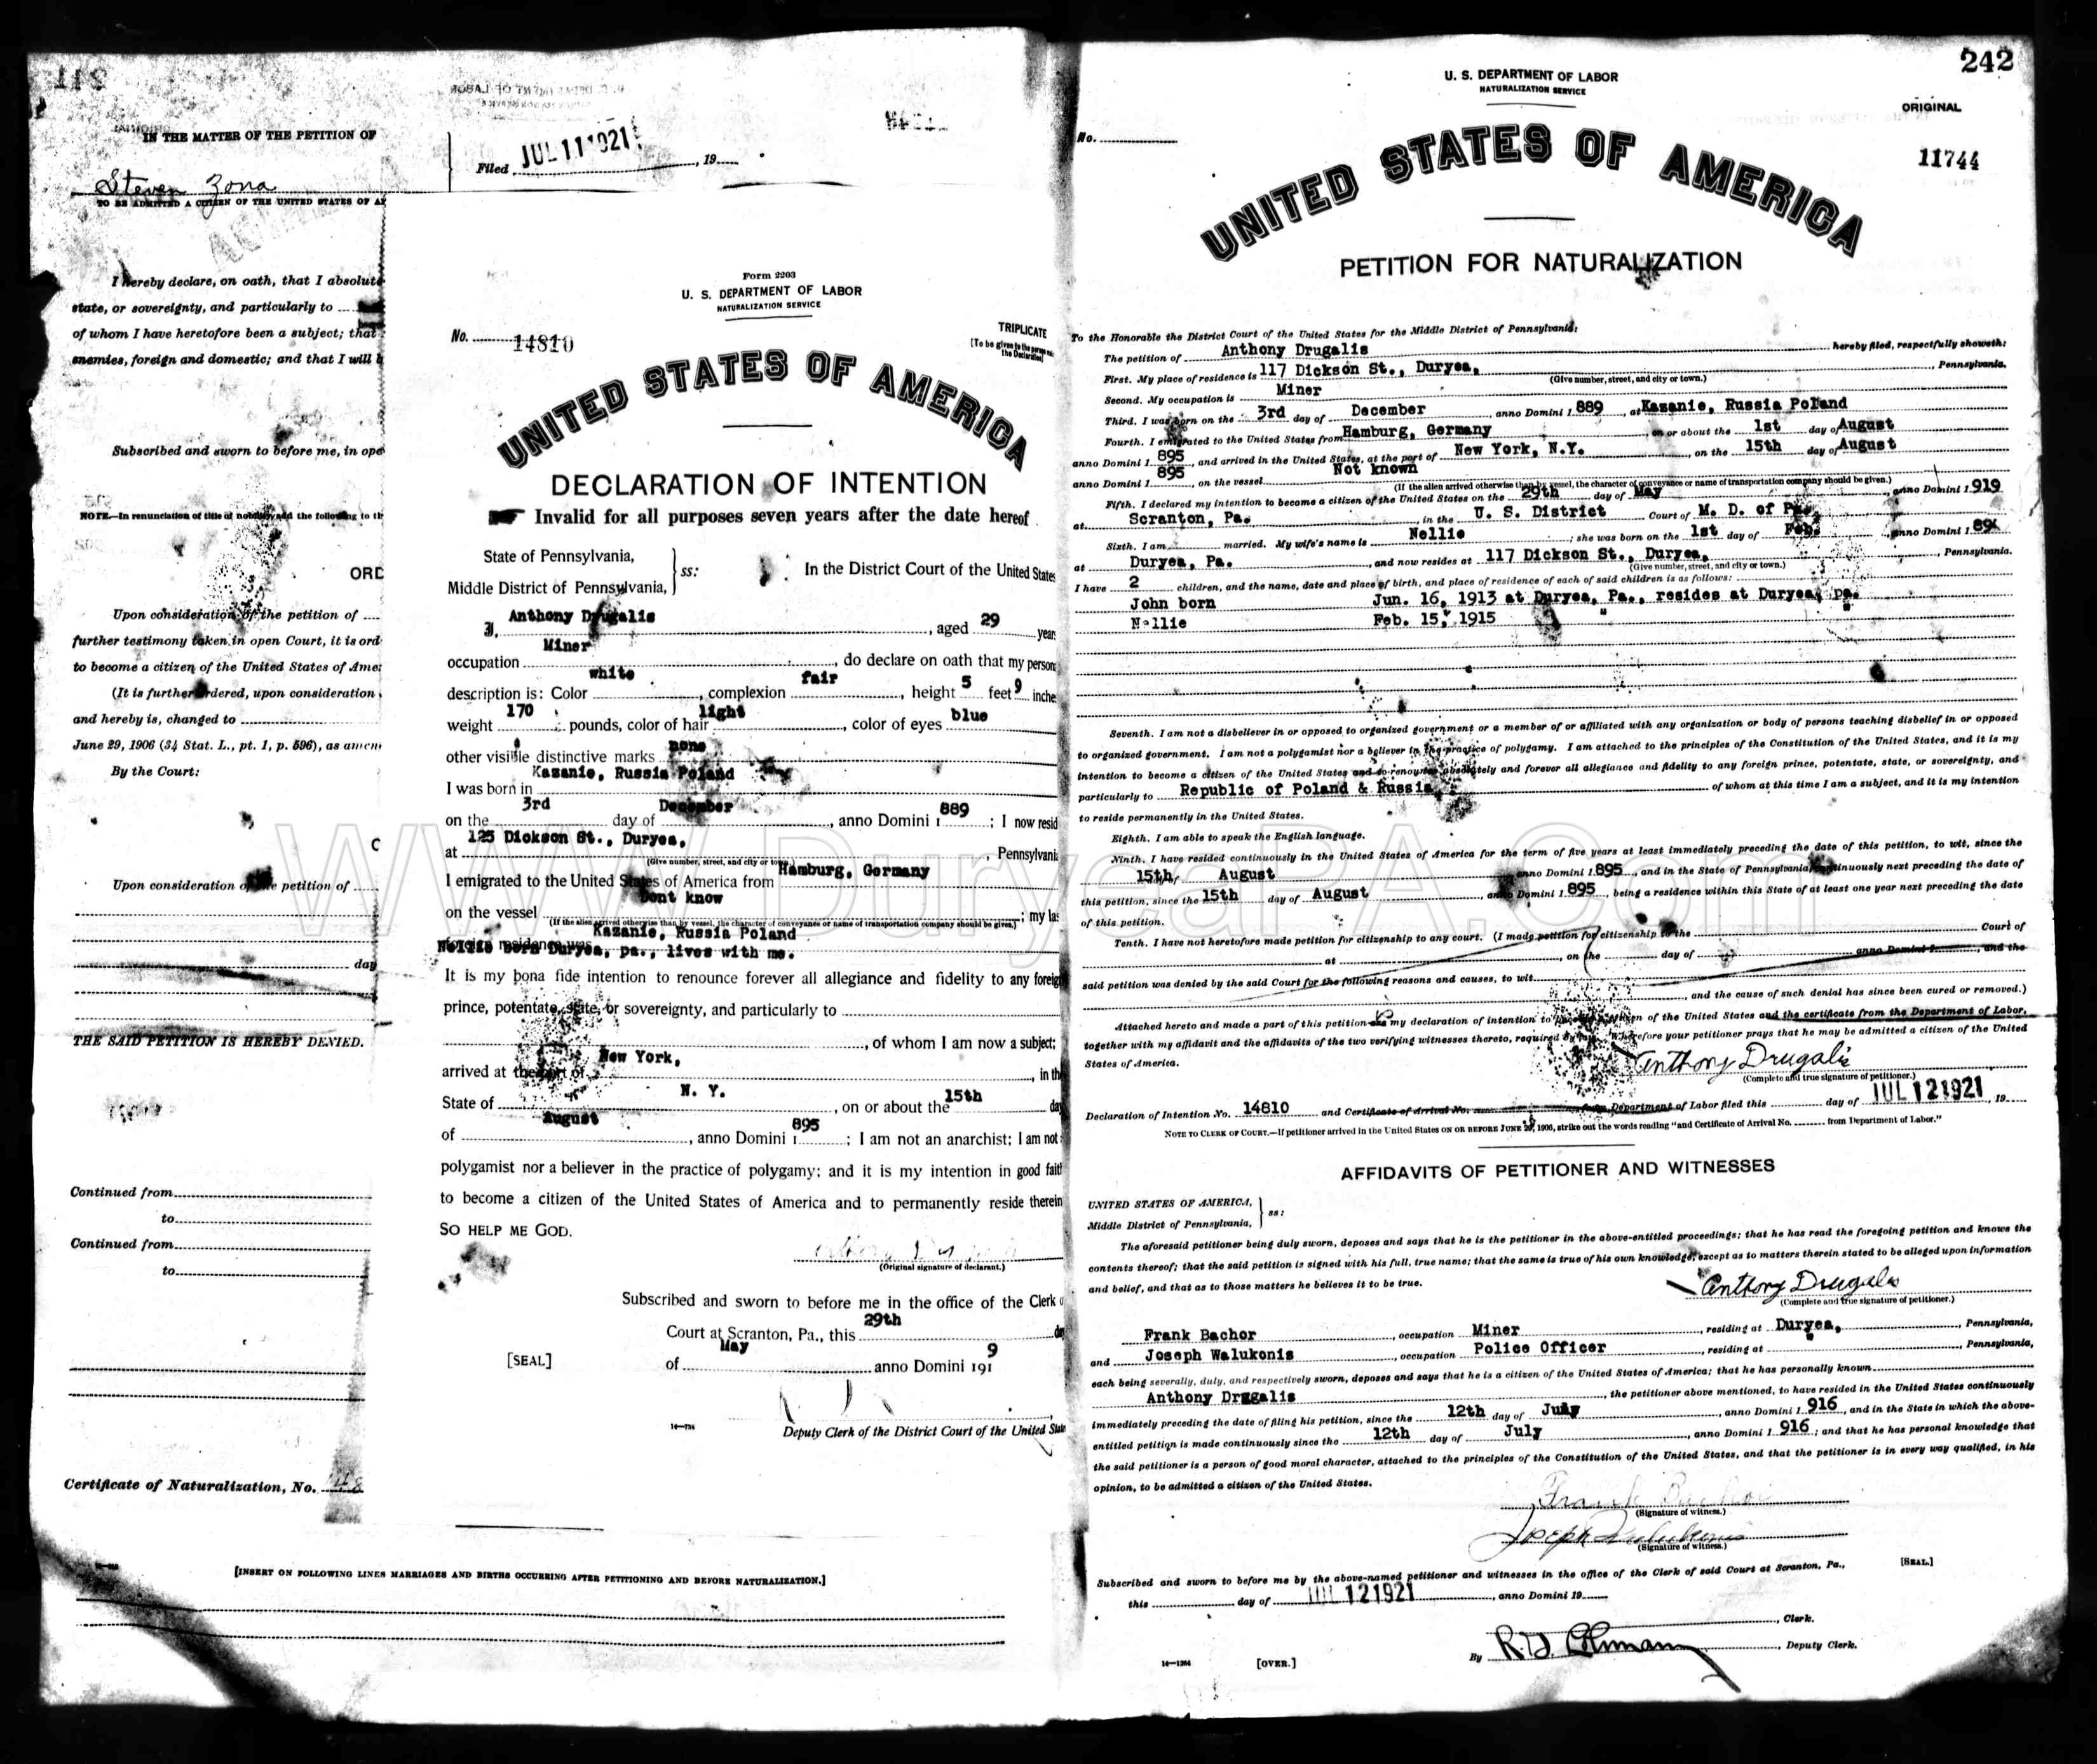 IN THE MATTER OF THE PETITION OF
Steven Zona
TO BE ADMITTED A CITIZEN OF THE UNITED STATES OF
Filed JUL 11 1921, 19
I hereby declare, on oath, that I absolute
state, or sovereignty, and particularly to
of whom I have heretofore been a subject; that
enemies, foreign and domestic; and that I will
Subscribed and sworn to before me, in ope
NOTE.—In renunciation of title of nobility, add the following to th
ORD
Upon consideration of the petition of
further testimony taken in open Court, it is ord
to become a citizen of the United States of Ame
(It is further ordered, upon consideration
and hereby is, changed to
June 29, 1906 (34 Stat. L., pt. 1, p. 596), as amen
By the Court:
C
Upon consideration of the petition of
day
THE SAID PETITION IS HEREBY DENIED.
Continued from
to
Continued from
to
Certificate of Naturalization, No.
[INSERT ON FOLLOWING LINES MARRIAGES AND BIRTHS OCCURRING AFTER PETITIONING AND BEFORE NATURALIZATION.]
Form 2203
U. S. DEPARTMENT OF LABOR
NATURALIZATION SERVICE
No. 14810
TRIPLICATE
[To be given to the person
the Declaration]
UNITED STATES OF AMERICA
DECLARATION OF INTENTION
Invalid for all purposes seven years after the date hereof
State of Pennsylvania,
Middle District of Pennsylvania,
ss:
In the District Court of the United States
I, Anthony Drugalis, aged 29 year
occupation Miner, do declare on oath that my person
description is: Color white, complexion fair, height 5 feet 9 inche
weight 170 pounds, color of hair light, color of eyes blue
other visible distinctive marks none
I was born in Kazanie, Russia Poland
on the 3rd day of December, anno Domini 1 889; I now resid
at 125 Dickson St., Duryea, Pennsylvania
(Give number, street, and city or town.)
I emigrated to the United States of America from Hamburg, Germany
on the vessel Dont know; my las
(If the alien arrived otherwise than by vessel, the character of conveyance or name of transportation company should be given.)
foreign residence was Kazanie, Russia Poland
Nellie born Duryea, pa., lives with me.
It is my bona fide intention to renounce forever all allegiance and fidelity to any foreig
prince, potentate, state, or sovereignty, and particularly to
, of whom I am now a subject;
arrived at the port of New York, in the
State of N. Y., on or about the 15th da
of August, anno Domini 1 895; I am not an anarchist; I am not
polygamist nor a believer in the practice of polygamy; and it is my intention in good fait
to become a citizen of the United States of America and to permanently reside therein
SO HELP ME GOD.
(Original signature of declarant.)
Subscribed and sworn to before me in the office of the Clerk o
Court at Scranton, Pa., this 29th da
[SEAL]
of May anno Domini 191 9
14—734
Deputy Clerk of the District Court of the United Stat
242
U. S. DEPARTMENT OF LABOR
NATURALIZATION SERVICE
ORIGINAL
No.
11744
UNITED STATES OF AMERICA
PETITION FOR NATURALIZATION
To the Honorable the District Court of the United States for the Middle District of Pennsylvania:
The petition of Anthony Drugalis hereby filed, respectfully showeth:
First. My place of residence is 117 Dickson St., Duryea, Pennsylvania.
(Give number, street, and city or town.)
Second. My occupation is Miner
Third. I was born on the 3rd day of December, anno Domini 1 889, at Kazanie, Russia Poland
Fourth. I emigrated to the United States from Hamburg, Germany, on or about the 1st day of August
anno Domini 1 895, and arrived in the United States, at the port of New York, N.Y., on the 15th day of August
anno Domini 1 895, on the vessel Not known
(If the alien arrived otherwise than by vessel, the character of conveyance or name of transportation company should be given.)
Fifth. I declared my intention to become a citizen of the United States on the 29th day of May, anno Domini 1 919
at Scranton, Pa., in the U. S. District Court of M. D. of Pa.
Sixth. I am married. My wife's name is Nellie; she was born on the 1st day of Feb., anno Domini 1
at Duryea, Pa., and now resides at 117 Dickson St., Duryea, Pennsylvania.
(Give number, street, and city or town.)
I have 2 children, and the name, date and place of birth, and place of residence of each of said children is as follows:
John born Jun. 16, 1913 at Duryea, Pa., resides at Duryea, pa.
Nellie Feb. 15, 1915 " "
Seventh. I am not a disbeliever in or opposed to organized government or a member of or affiliated with any organization or body of persons teaching disbelief in or opposed
to organized government. I am not a polygamist nor a believer in the practice of polygamy. I am attached to the principles of the Constitution of the United States, and it is my
intention to become a citizen of the United States and to renounce absolutely and forever all allegiance and fidelity to any foreign prince, potentate, state, or sovereignty, and
particularly to Republic of Poland & Russia of whom at this time I am a subject, and it is my intention
to reside permanently in the United States.
Eighth. I am able to speak the English language.
Ninth. I have resided continuously in the United States of America for the term of five years at least immediately preceding the date of this petition, to wit, since the
15th, August anno Domini 1 895, and in the State of Pennsylvania, continuously next preceding the date of
this petition, since the 15th day of August, anno Domini 1 895, being a residence within this State of at least one year next preceding the date
of this petition.
Tenth. I have not heretofore made petition for citizenship to any court. (I made petition for citizenship to the Court of
at , on the day of anno Domini 1, and the
said petition was denied by the said Court for the following reasons and causes, to wit
, and the cause of such denial has since been cured or removed.)
Attached hereto and made a part of this petition my declaration of intention to become a citizen of the United States and the certificate from the Department of Labor,
together with my affidavit and the affidavits of the two verifying witnesses thereto, required by law. Wherefore your petitioner prays that he may be admitted a citizen of the United
States of America.
Anthony Drugalis
(Complete and true signature of petitioner.)
Declaration of Intention No. 14810 and Certificate of Arrival No. from Department of Labor filed this day of JUL 12 1921, 19
NOTE TO CLERK OF COURT.—If petitioner arrived in the United States ON OR BEFORE JUNE 29, 1906, strike out the words reading "and Certificate of Arrival No. from Department of Labor."
AFFIDAVITS OF PETITIONER AND WITNESSES
UNITED STATES OF AMERICA,
Middle District of Pennsylvania,
ss:
The aforesaid petitioner being duly sworn, deposes and says that he is the petitioner in the above-entitled proceedings; that he has read the foregoing petition and knows the
contents thereof; that the said petition is signed with his full, true name; that the same is true of his own knowledge, except as to matters therein stated to be alleged upon information
and belief, and that as to those matters he believes it to be true.
Anthony Drugalis
(Complete and true signature of petitioner.)
Frank Bachor, occupation Miner, residing at Duryea, Pennsylvania,
and Joseph Walukonis, occupation Police Officer, residing at , Pennsylvania,
each being severally, duly, and respectively sworn, deposes and says that he is a citizen of the United States of America; that he has personally known
Anthony Drggalis, the petitioner above mentioned, to have resided in the United States continuously
immediately preceding the date of filing his petition, since the 12th day of July, anno Domini 1 916, and in the State in which the above-
entitled petition is made continuously since the 12th day of July, anno Domini 1 916; and that he has personal knowledge that
the said petitioner is a person of good moral character, attached to the principles of the Constitution of the United States, and that the petitioner is in every way qualified, in his
opinion, to be admitted a citizen of the United States.
Frank Bachor
(Signature of witness.)
Joseph Walukonis
(Signature of witness.)
Subscribed and sworn to before me by the above-named petitioner and witnesses in the office of the Clerk of said Court at Scranton, Pa.,
[SEAL.]
this day of JUL 12 1921, anno Domini 19
, Clerk.
By , Deputy Clerk.
14—1364
[OVER.]
WWW.DuryeaPA.com